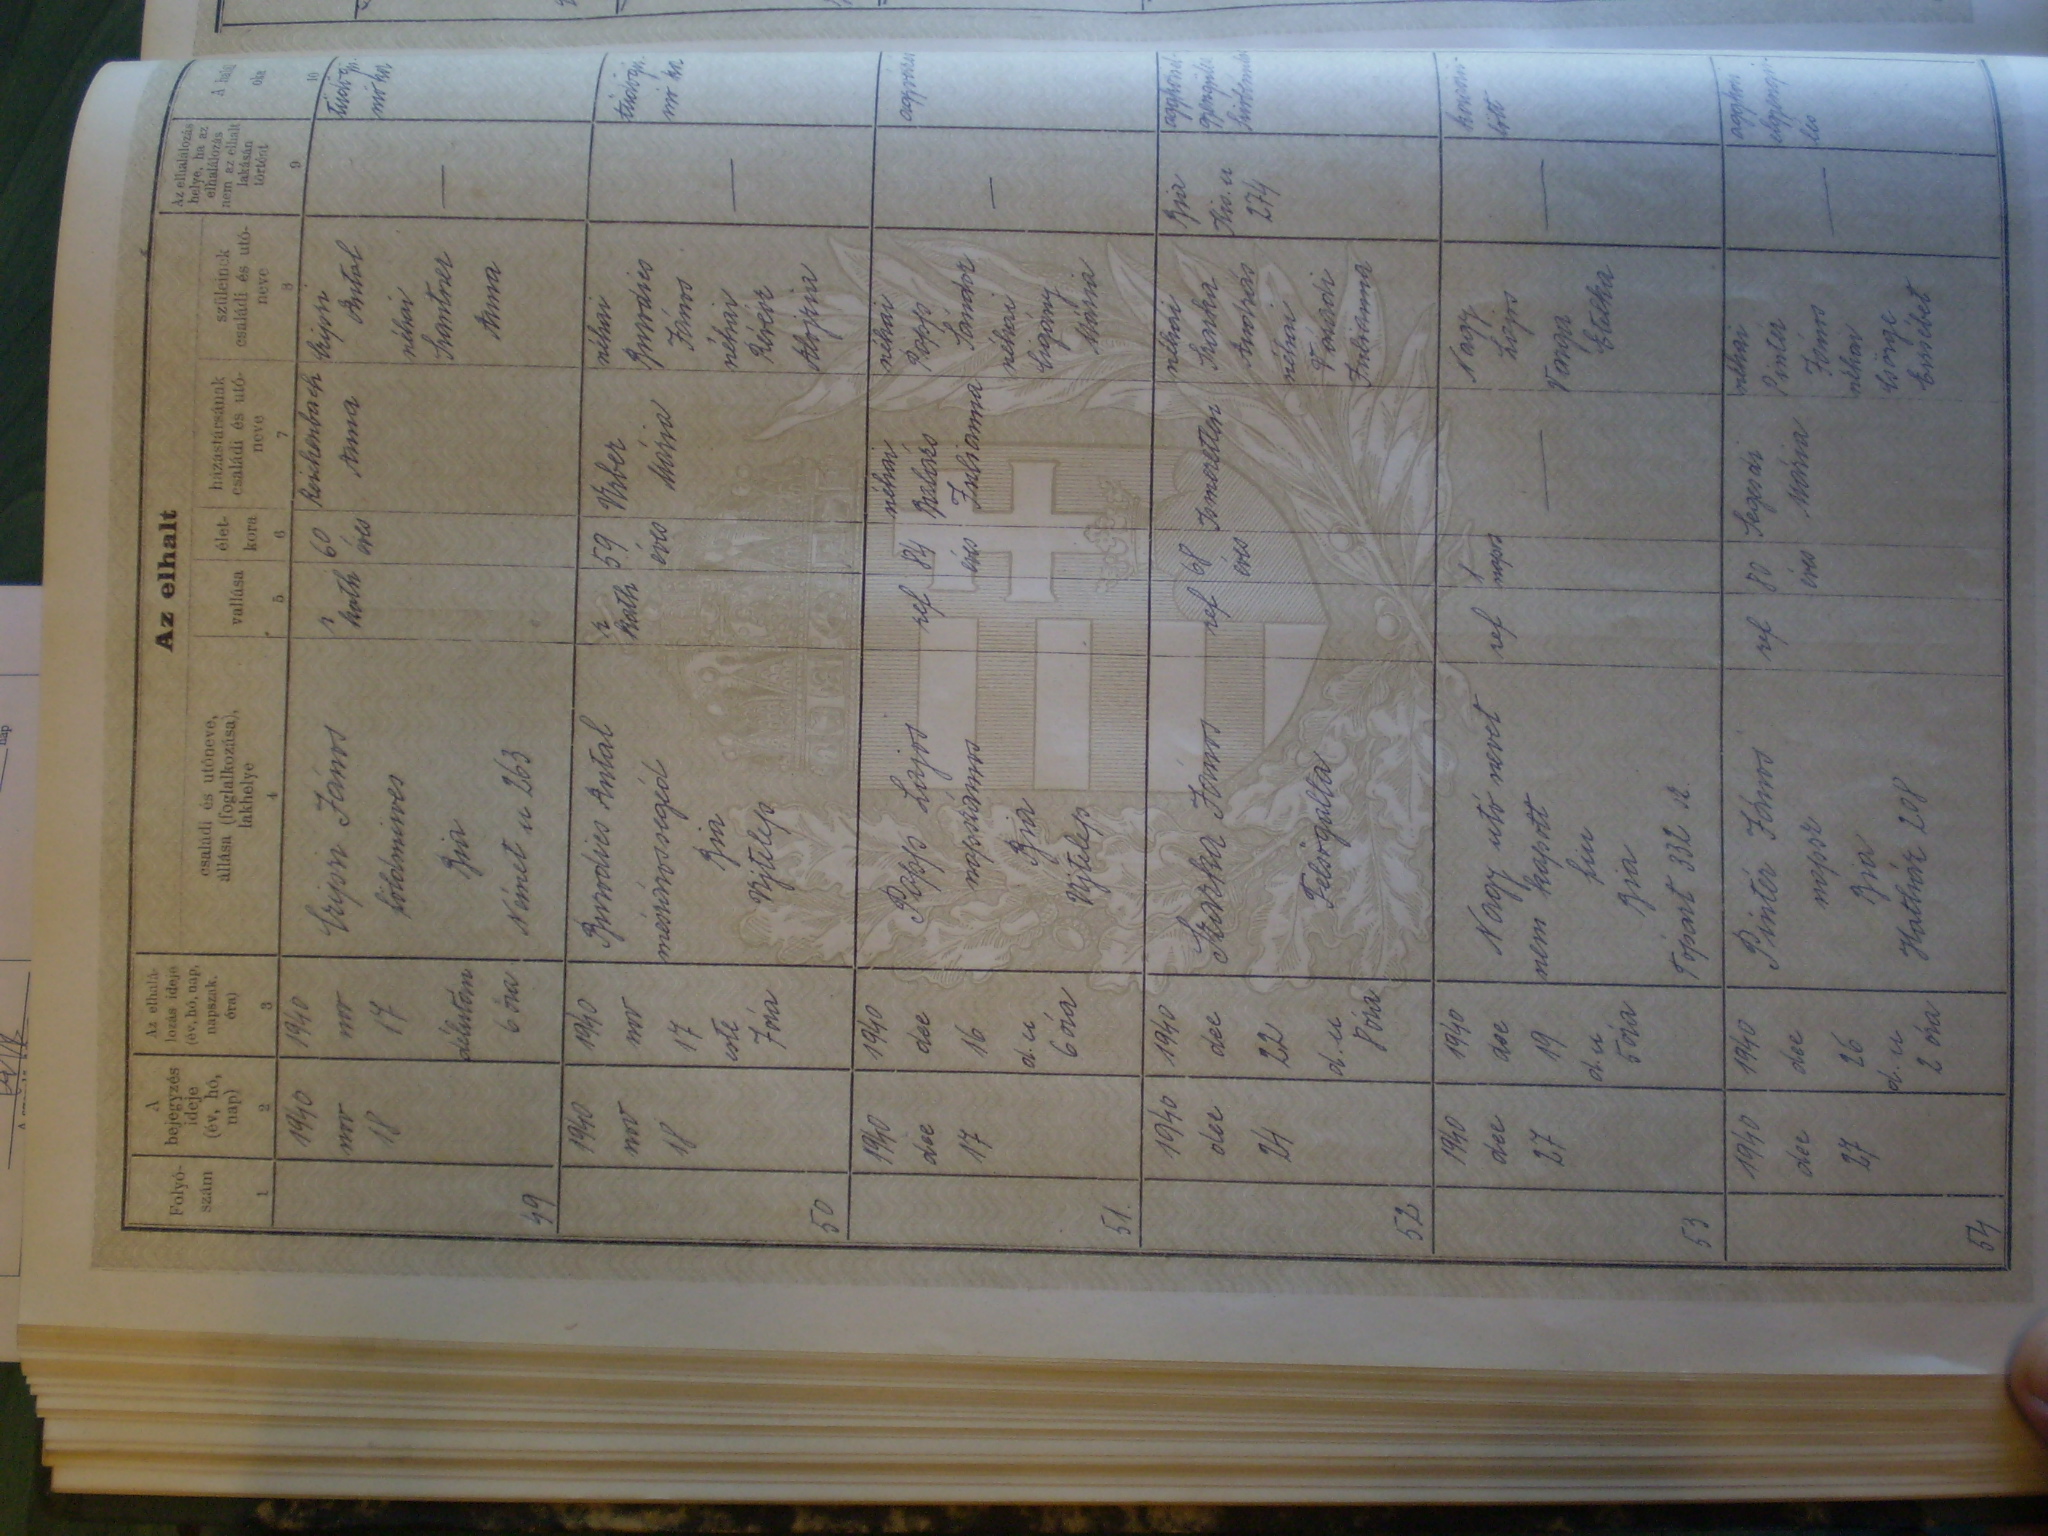 Az elhalt
Folyó-
szám
A
bejegyzés
ideje
(év, hó,
nap)
Az elhalá-
lozás ideje
(év, hó, nap,
napszak,
óra)
családi és utóneve,
állása (foglalkozása),
lakhelye
vallása
élet-
kora
házastársának
családi és utó-
neve
szüleinek
családi és utó-
neve
Az elhalálozás
helye, ha az
elhalálozás
nem az elhalt
lakásán
történt
A halál
oka
1
2
3
4
5
6
7
8
9
10
49
1940
nov
18
1940
nov
17
délután
6 óra
János
földmives
Bia
Német u 263
r
kath
60
éves
Reichenbach
Anna
Antal
néhai
Anna
—
50
1940
nov
18
1940
nov
17
este
7 óra
Antal
mészárossegéd
Bia
Ujtelep
r
kath
59
éves
Weber
Mária
néhai
János
néhai
Alojzia
—
51.
1940
dec
17
1940
dec
16
d. u
6 óra
Papp Lajos
napszámos
Bia
Ujtelep
ref
84
éves
néhai
Balázs
Julianna
néhai
Papp
Sándor
néhai
Cigány
Mária
—
52
1940
dec
24
1940
dec
22
d. u
8 óra
Szarka János
Felsőgalla
ref
68
éves
Ismeretlen
néhai
Szarka
András
néhai
Váradi
Julianna
Bia
Kis. u
274
53
1940
dec
27
1940
dec
19
d. u
5 óra
Nagy utó nevet
nem kapott
Bia
Tópart 332 sz.
ref
1
napos
—
Nagy
Lajos
Varga
Etelka
—
54
1940
dec
27
1940
dec
26
d. u
2 óra
Pintér János
napsz
Bia
Hatház 208
ref
80
éves
Mária
néhai
Pintér
János
néhai
Csonge
Erzsébet
—